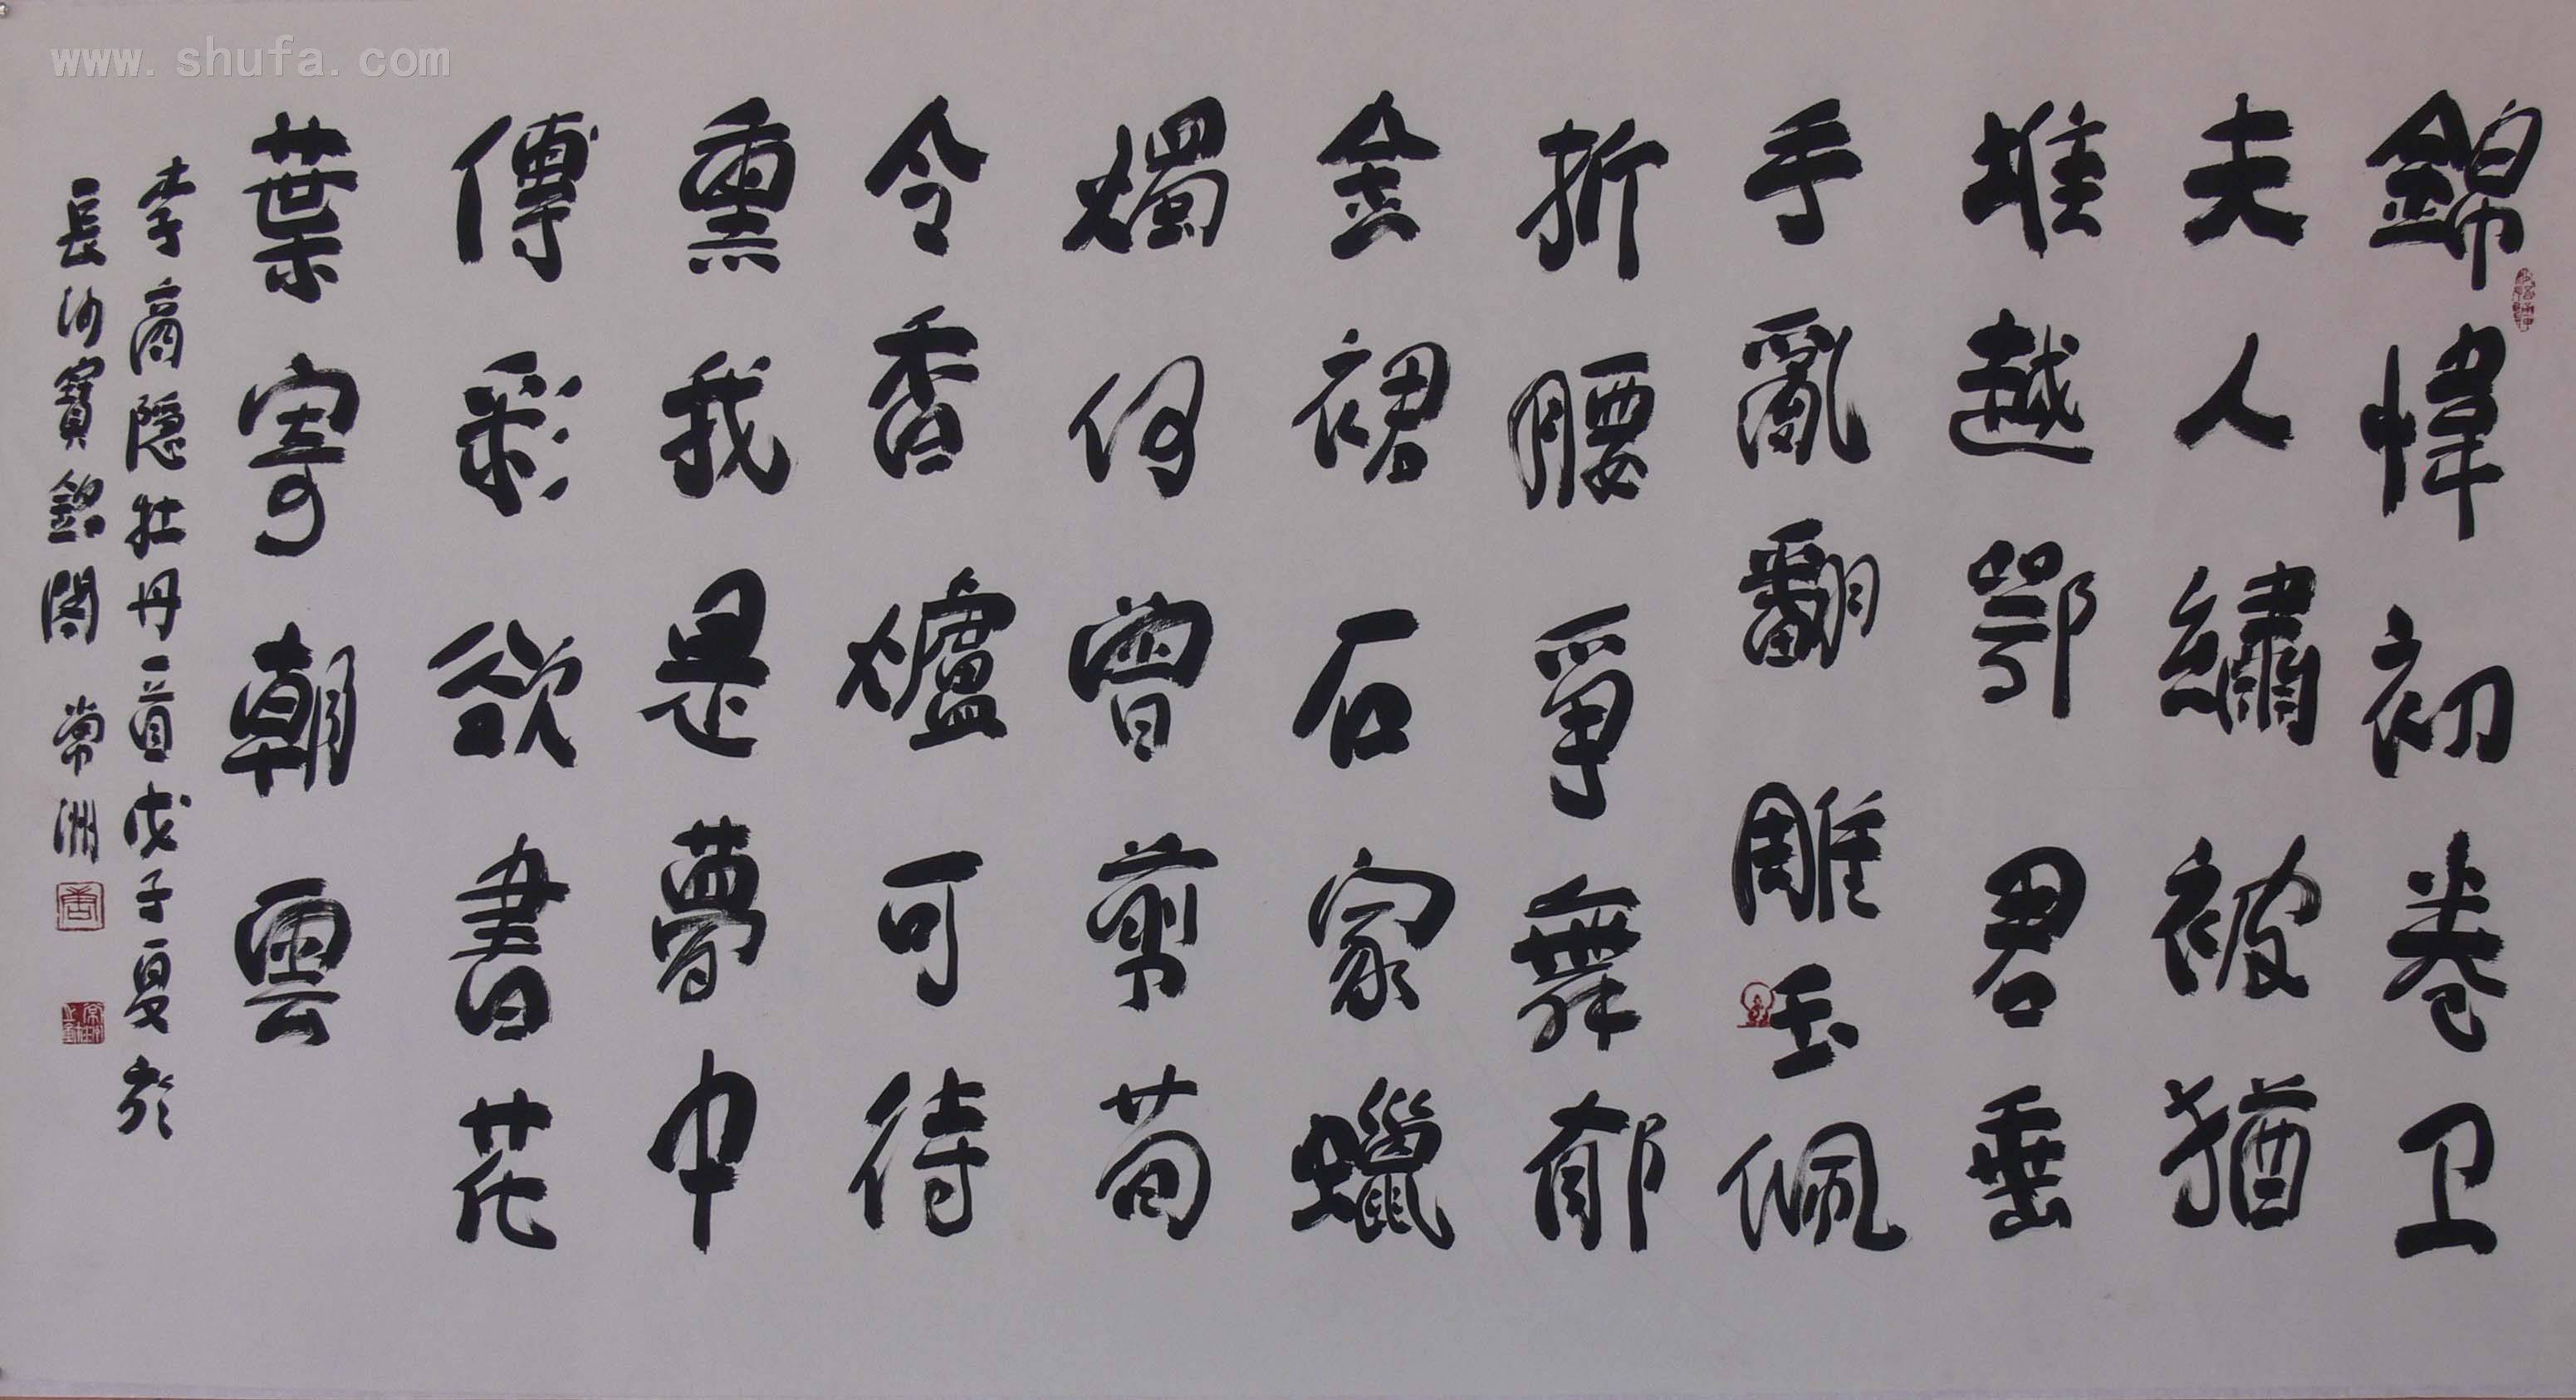 錦幃初卷卫
夫人繡被猶
堆越鄂君垂
手亂翻雕玉佩
折腰爭舞郁
金裙石家蠟
燭何曾剪荀
令香爐可待
熏我是夢中
傳彩欲書花
葉寄朝雲
李商隱牡丹一首戊子夏於
長沙寶銘閣 常洲
www.shufa.com